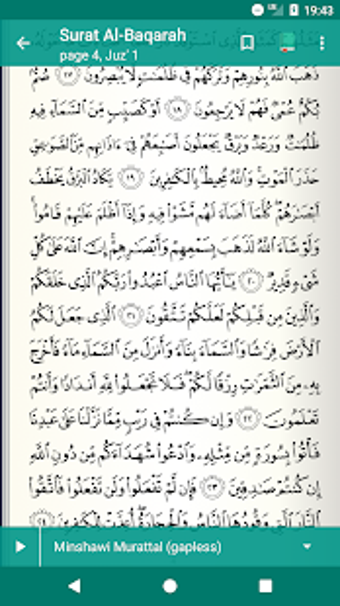 19:43
Surat Al-Baqarah
page 4, Juz' 1
ذَهَبَ ٱللَّهُ بِنُورِهِمْ وَتَرَكَهُمْ فِي ظُلُمَٰتٍ لَّا يُبْصِرُونَ ١٧ صُمٌّۢ
بُكْمٌ عُمْيٌ فَهُمْ لَا يَرْجِعُونَ ١٨ أَوْ كَصَيِّبٍ مِّنَ ٱلسَّمَآءِ فِيهِ
ظُلُمَٰتٌ وَرَعْدٌ وَبَرْقٌ يَجْعَلُونَ أَصَٰبِعَهُمْ فِيٓ ءَاذَانِهِم مِّنَ ٱلصَّوَٰعِقِ
حَذَرَ ٱلْمَوْتِ وَٱللَّهُ مُحِيطٌۢ بِٱلْكَٰفِرِينَ ١٩ يَكَادُ ٱلْبَرْقُ يَخْطَفُ
أَبْصَٰرَهُمْ كُلَّمَآ أَضَآءَ لَهُم مَّشَوْا۟ فِيهِ وَإِذَآ أَظْلَمَ عَلَيْهِمْ قَامُوا۟
وَلَوْ شَآءَ ٱللَّهُ لَذَهَبَ بِسَمْعِهِمْ وَأَبْصَٰرِهِمْ إِنَّ ٱللَّهَ عَلَىٰ كُلِّ
شَيْءٍ قَدِيرٌ ٢٠ يَٰٓأَيُّهَا ٱلنَّاسُ ٱعْبُدُوا۟ رَبَّكُمُ ٱلَّذِي خَلَقَكُمْ
وَٱلَّذِينَ مِن قَبْلِكُمْ لَعَلَّكُمْ تَتَّقُونَ ٢١ ٱلَّذِي جَعَلَ لَكُمُ
ٱلْأَرْضَ فِرَٰشًا وَٱلسَّمَآءَ بِنَآءً وَأَنزَلَ مِنَ ٱلسَّمَآءِ مَآءً فَأَخْرَجَ
بِهِۦ مِنَ ٱلثَّمَرَٰتِ رِزْقًا لَّكُمْ فَلَا تَجْعَلُوا۟ لِلَّهِ أَندَادًا وَأَنتُمْ
تَعْلَمُونَ ٢٢ وَإِن كُنتُمْ فِي رَيْبٍ مِّمَّا نَزَّلْنَا عَلَىٰ عَبْدِنَا
فَأْتُوا۟ بِسُورَةٍ مِّن مِّثْلِهِۦ وَٱدْعُوا۟ شُهَدَآءَكُم مِّن دُونِ ٱللَّهِ
إِن كُنتُمْ صَٰدِقِينَ ٢٣ فَإِن لَّمْ تَفْعَلُوا۟ وَلَن تَفْعَلُوا۟ فَٱتَّقُوا۟
ٱلنَّارَ ٱلَّتِي وَقُودُهَا ٱلنَّاسُ وَٱلْحِجَارَةُ أُعِدَّتْ لِلْكَٰفِرِينَ ٢٤
Minshawi Murattal (gapless)